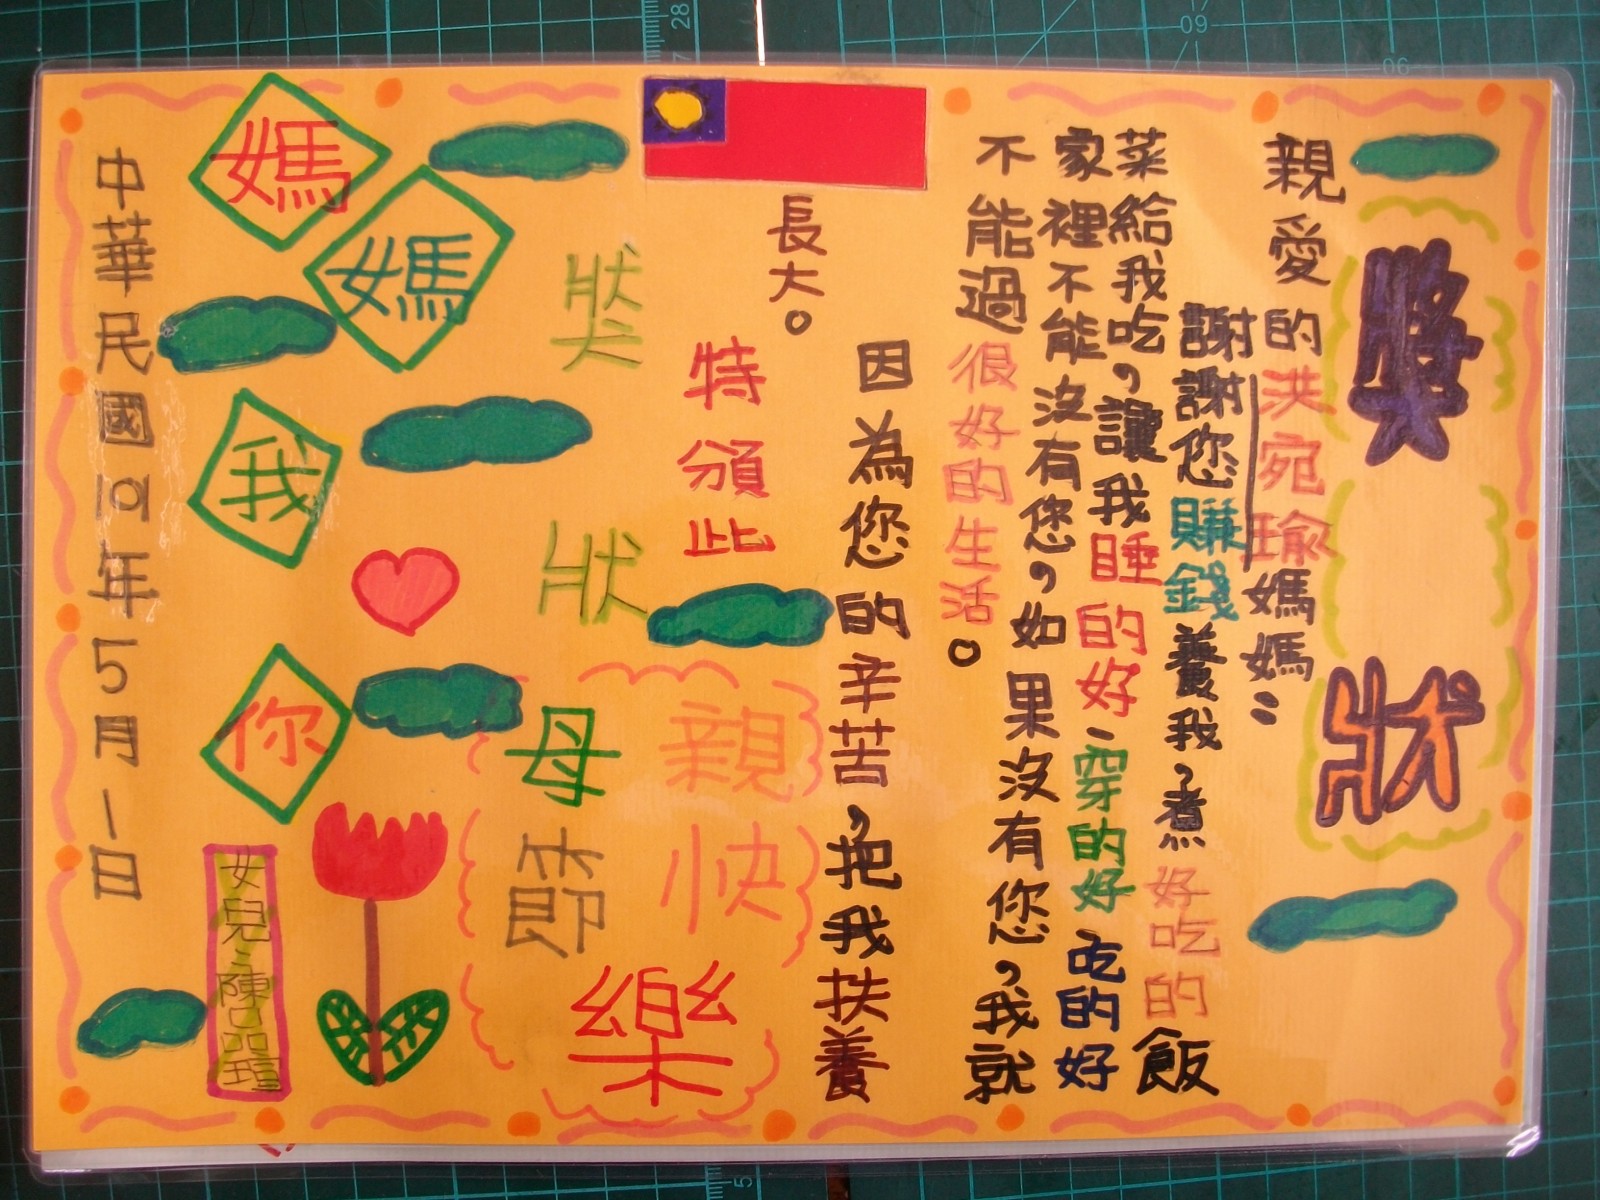 獎狀
親愛的洪宛瑜媽媽：
謝謝您賺錢養我，煮好吃的飯
菜給我吃，讓我睡的好、穿的好 吃的好
家裡不能沒有您，如果沒有您，我就
不能過很好的生活。
因為您的辛苦，把我扶養
長大。
特頒此
奖狀
母親節快樂
媽媽我你
女兒：陳品瑄
中華民國101年5月1日
28